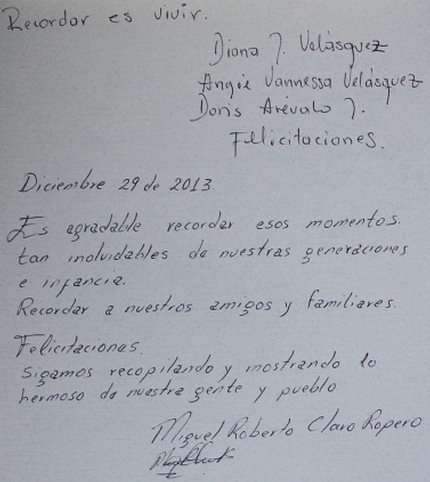 Recordar es vivir.
Diana J. Velásquez
Angie Vannessa Velásquez
Doris Arévalo J.
Felicitaciones.
Diciembre 29 de 2013.
Es agradable recordar esos momentos.
tan inolvidables de nuestras generaciones
e infancia.
Recordar a nuestros amigos y familiares.
Felicitaciones.
Sigamos recopilando y mostrando lo
hermoso de nuestra gente y pueblo
Miguel Roberto Claro Ropero